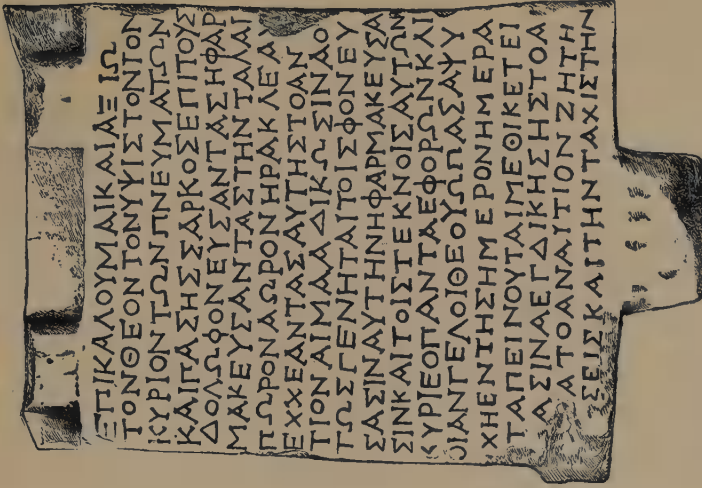 ΕΠΙΚΑΛΟΥΜΑΙΚΑΙΑΞΙΩ
ΤΟΝΘΕΟΝΤΟΝΥΨΙΣΤΟΝΤΟΝ
ΚΥΡΙΟΝΤΩΝΠΝΕΥΜΑΤΩΝ
ΚΑΙΠΑΣΗΣΣΑΡΚΟΣΕΠΙΤΟΥΣ
ΔΟΛΩΦΟΝΕΥΣΑΝΤΑΣΗΦΑΡ
ΜΑΚΕΥΣΑΝΤΑΣΤΗΝΤΑΛΑΙ
ΠΩΡΟΝΑΩΡΟΝΗΡΑΚΛΕΑΝ
ΕΧΧΕΑΝΤΑΣΑΥΤΗΣΤΟΑΝ
ΤΙΟΝΑΙΜΑΑΔΙΚΩΣΙΝΑΟ
ΤΩΣΓΕΝΗΤΑΙΤΟΙΣΦΟΝΕΥ
ΣΑΣΙΝΑΥΤΗΝΗΦΑΡΜΑΚΕΥΣΑ
ΣΙΝΚΑΙΤΟΙΣΤΕΚΝΟΙΣΑΥΤΩΝ
ΚΥΡΙΕΟΠΑΝΤΑΕΦΟΡΩΝΚΑΙ
ΟΙΑΝΓΕΛΟΙΘΕΟΥΩΠΑΣΑΨΥ
ΧΗΕΝΤΗΣΗΜΕΡΟΝΗΜΕΡΑ
ΤΑΠΕΙΝΟΥΤΑΙΜΕΘΙΚΕΤΕΙ
ΑΣΙΝΑΕΓΔΙΚΗΣΗΣΤΟΑ
ΑΤΟΑΝΑΥΤΙΟΝΖΗΤΗ
ΣΕΙΣΚΑΙΤΗΝΤΑΧΙΣΤΗΝ